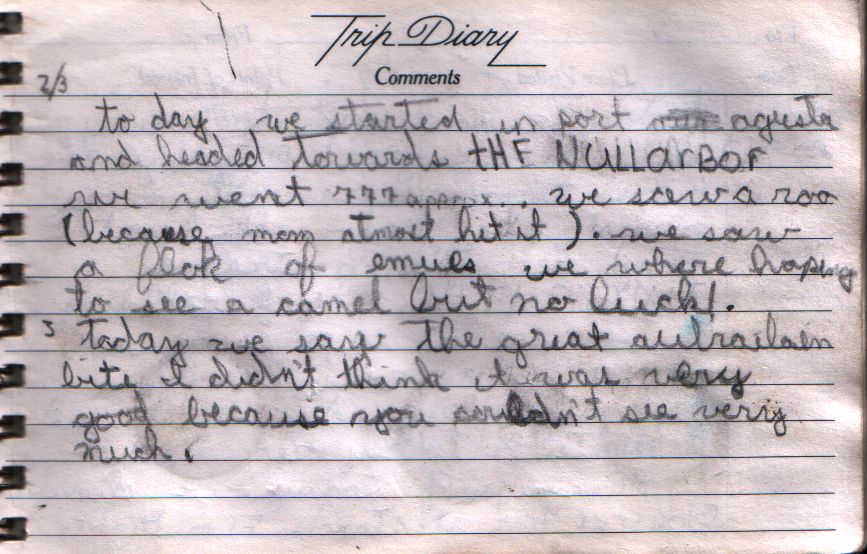 Trip Diary
Comments
2/3
to day we started in port agusta
and headed towards tHE NULLarBor
we went 777 approx.. we saw a roo
(because mom atmost hit it). we saw
a flok of emues we where hoping
to see a camel but no luck!.
3 today we saw the great autrailain
bite I didn't think it was very
good because you couldn't see very
much.